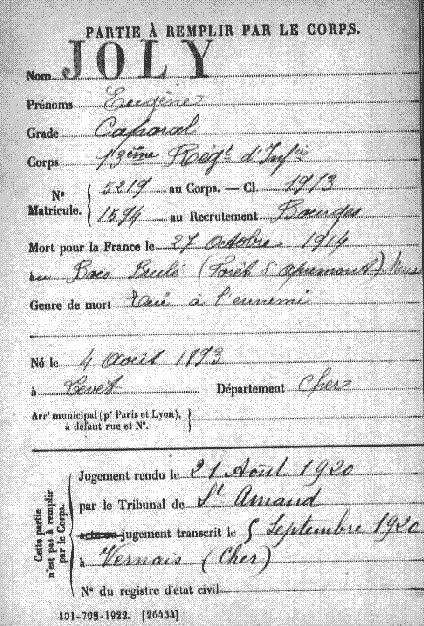 PARTIE À REMPLIR PAR LE CORPS.
Nom JOLY
Prénoms Eugène
Grade Caporal
Corps 13ème Régt d'Infie
N° Matricule. 5219 au Corps. — Cl. 1913
1594 au Recrutement Bourges
Mort pour la France le 27 Octobre 1914
au Bois Brulé (Forêt d'Apremont) Meuse
Genre de mort Tué à l'ennemi
Né le 4 Août 1893
à Levet Département Cher
Arrt municipal (pr Paris et Lyon), à défaut rue et N°.
Jugement rendu le 21 Août 1920
par le Tribunal de St Amand
jugement transcrit le 5 Septembre 1920
à Vernais (Cher)
N° du registre d'état civil
Cette partie n'est pas à remplir par le Corps.
101-708-1922. [26434]